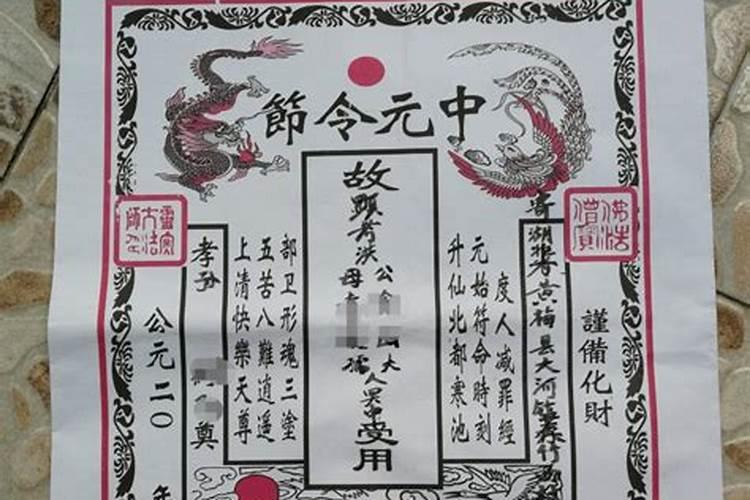 中元令節
佛法僧寶
謹備化財
寄湖北黄梅县大河镇
度人减罪經
元始符命時刻
升仙北都寒池
故
顯考洪公
母
大
孺人冥中受用
部卫形魂三塗
五苦八難逍遥
上清快樂天尊
孝孙
奠
靈寶大法師印
公元二〇
年